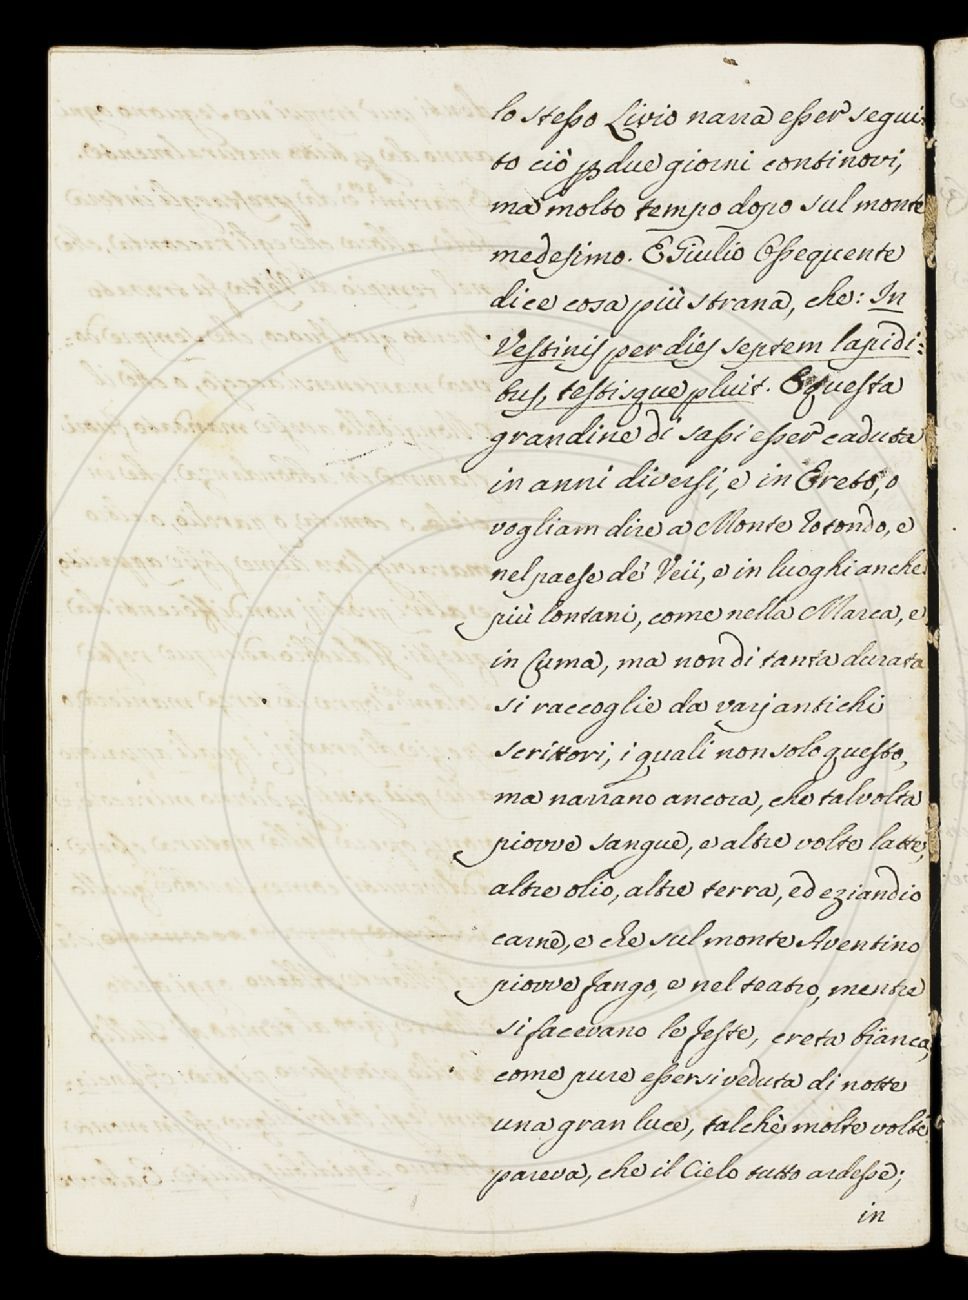 lo stesso Livio narra esser segui:
to ciò p due giorni continovi,
ma molto tempo dopo sul monte
medesimo. E Giulio Ossequente
dice cosa più strana, che: In
Vestinis per dies septem lapidi:
bus, testisque pluit. E questa
grandine di sassi esser caduta
in anni diversi, e in Ereto, o
vogliam dire a Monte Rotondo, e
nel paese de' Veii, e in luoghi anche
più lontani, come nella Marca, e
in Cuma, ma non di tanta durata
si raccoglie da varj antichi
scrittori, i quali non solo questo,
ma narrano ancora, che talvolta
piovve sangue, e altre volte latte,
altre olio, altre terra, ed eziandio
carne, e che sul monte Aventino
piovve fango, e nel teatro, mentre
si facevano le feste, creta bianca,
come pure essersi veduta di notte
una gran luce, talchè molte volte
pareva, che il Cielo tutto ardesse;
in